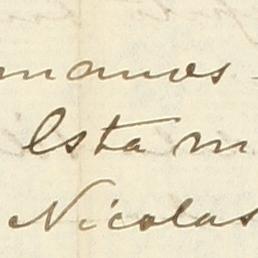 manos
Esta m
Nicolas